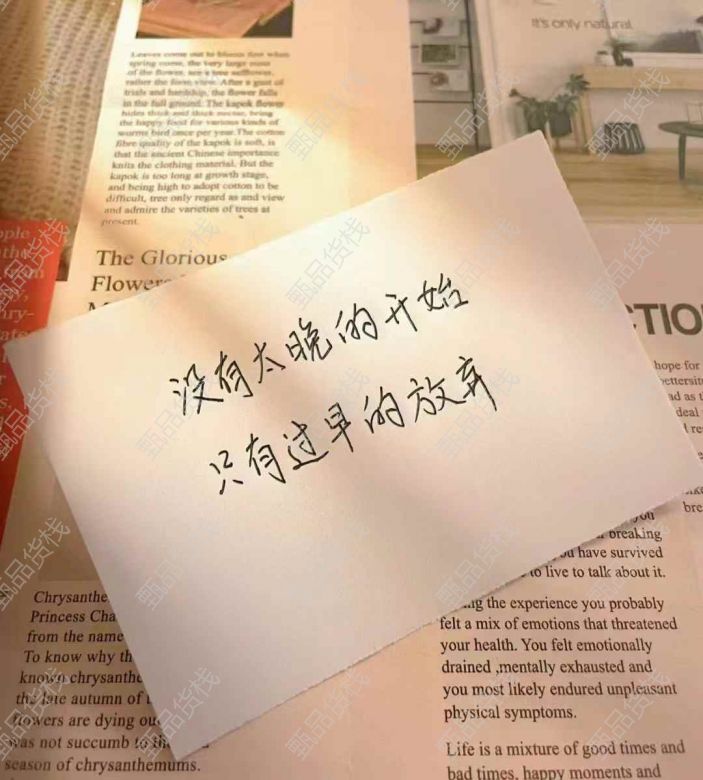 It's only natural.
Leaves come out to bloom first when
spring come, the very large most
of the flower, see a tree safflower,
rather the form view. After a gust of
trials and hardship, the flower falls
in the full ground. The kapok flower
hides thick and thick nectar, bring
the happy food for various kinds of
worms bird once per year. The cotton
fibre quality of the kapok is soft, is
that the ancient Chinese importance
knits the clothing material. But the
kapok is too long at growth stage,
and being high to adopt cotton to be
difficult, tree only regard as and view
and admire the varieties of trees at
present.
The Glorious
Flower
没有太晚的开始
只有过早的放弃
CTIO
hope for
bettersit
ad as t
deal
l re
bre
you
breaking
you have survived
to live to talk about it.
ng the experience you probably
felt a mix of emotions that threatened
your health. You felt emotionally
drained ,mentally exhausted and
you most likely endured unpleasant
physical symptoms.
Life is a mixture of good times and
bad times, happy moments and
Chrysanthe
Princess Cha
from the name
To know why th
known chrysanthe
the late autumn of t
flowers are dying ou
was not succumb to th
season of chrysanthemums.
甄品货栈